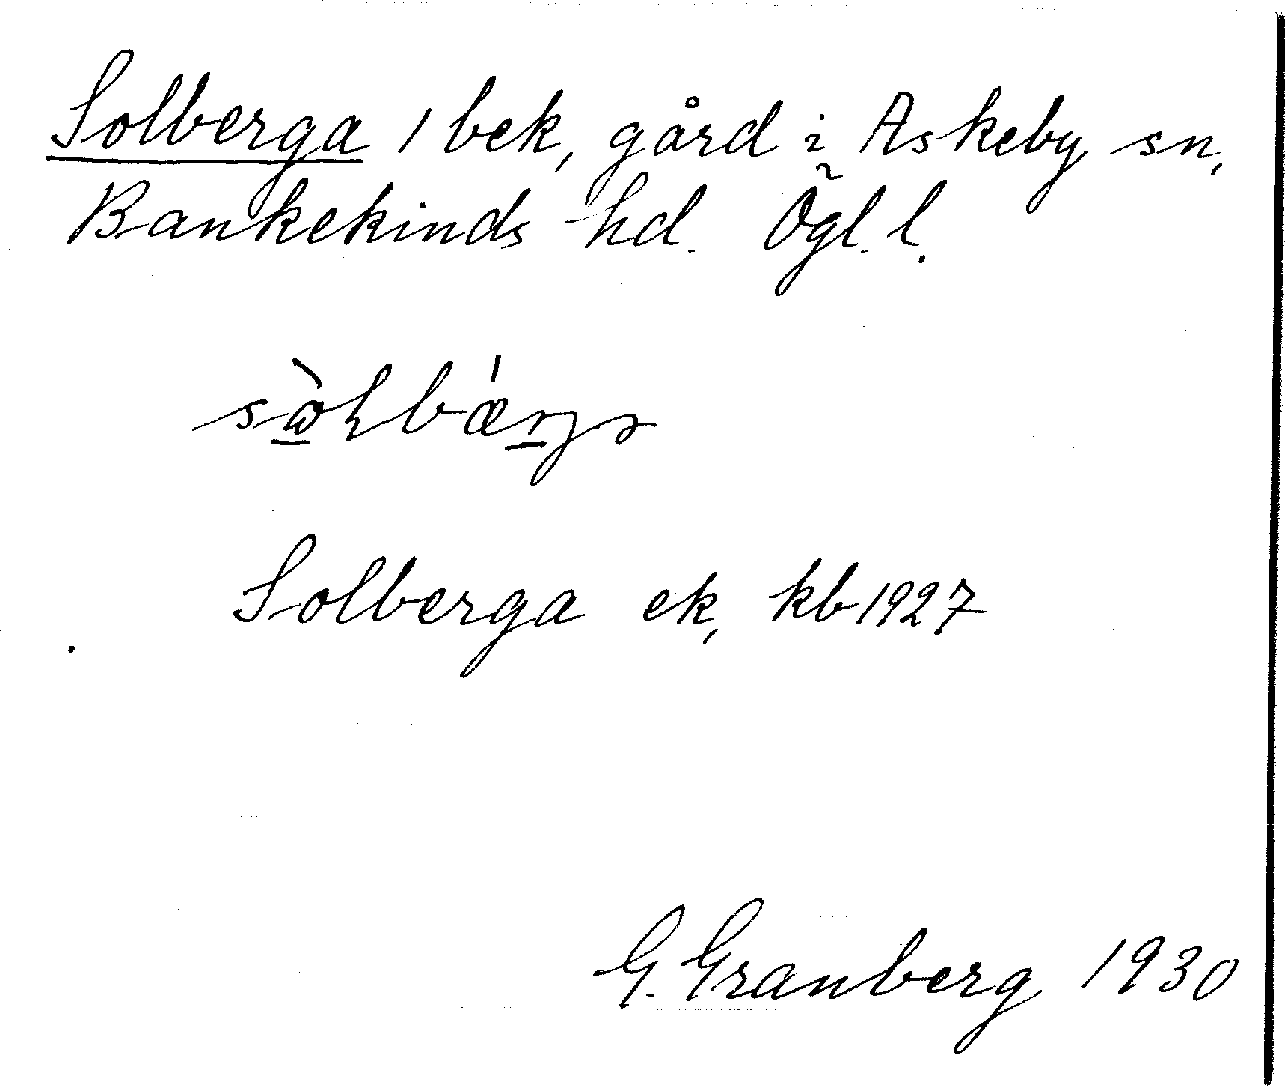 Solberga 1 bek, gård i Askeby sn,
Bankekinds hd. Ögl. l.
Solberga ek, kb 1927
G. Granberg 1930